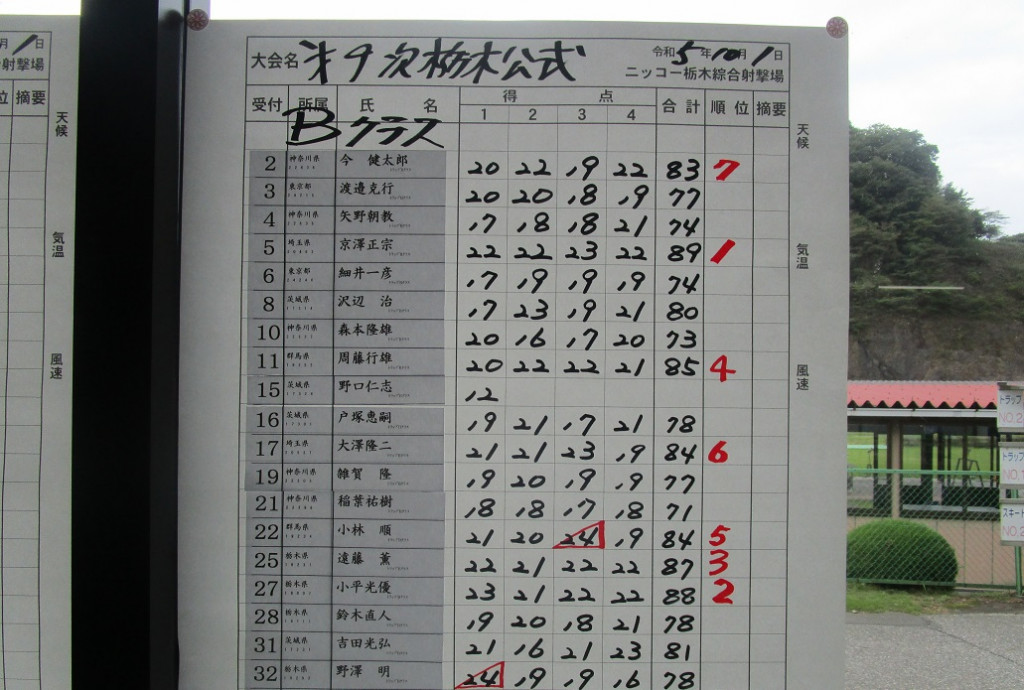 月1日
射撃場
位 摘要
天候
気温
風速
大会名 第9次栃木公式 令和5年10月1日
ニッコー栃木綜合射撃場
受付 所属 氏 名 得 点 合計 順位 摘要
1 2 3 4
Bクラス
2 神奈川県 今 健太郎 20 22 19 22 83 7
3 東京都 渡邉克行 20 20 18 19 77
4 神奈川県 矢野朝教 17 18 18 21 74
5 埼玉県 京澤正宗 22 22 23 22 89 1
6 東京都 細井一彦 17 19 19 19 74
8 茨城県 沢辺 治 17 23 19 21 80
10 神奈川県 森本隆雄 20 16 17 20 73
11 群馬県 周藤行雄 20 22 22 21 85 4
15 茨城県 野口仁志 12
16 茨城県 戸塚恵嗣 19 21 17 21 78
17 埼玉県 大澤隆二 21 21 23 19 84 6
19 神奈川県 雑賀 隆 19 20 19 19 77
21 神奈川県 稲葉祐樹 18 18 17 18 71
22 群馬県 小林 順 21 20 24 19 84 5
25 栃木県 遠藤 薫 22 21 22 22 87 3
27 栃木県 小平光優 23 21 22 22 88 2
28 栃木県 鈴木直人 19 20 18 21 78
31 茨城県 吉田光弘 21 16 21 23 81
32 栃木県 野澤 明 24 19 19 16 78
天候
気温
風速
トラップ
NO.
トラップ
NO.
スキート